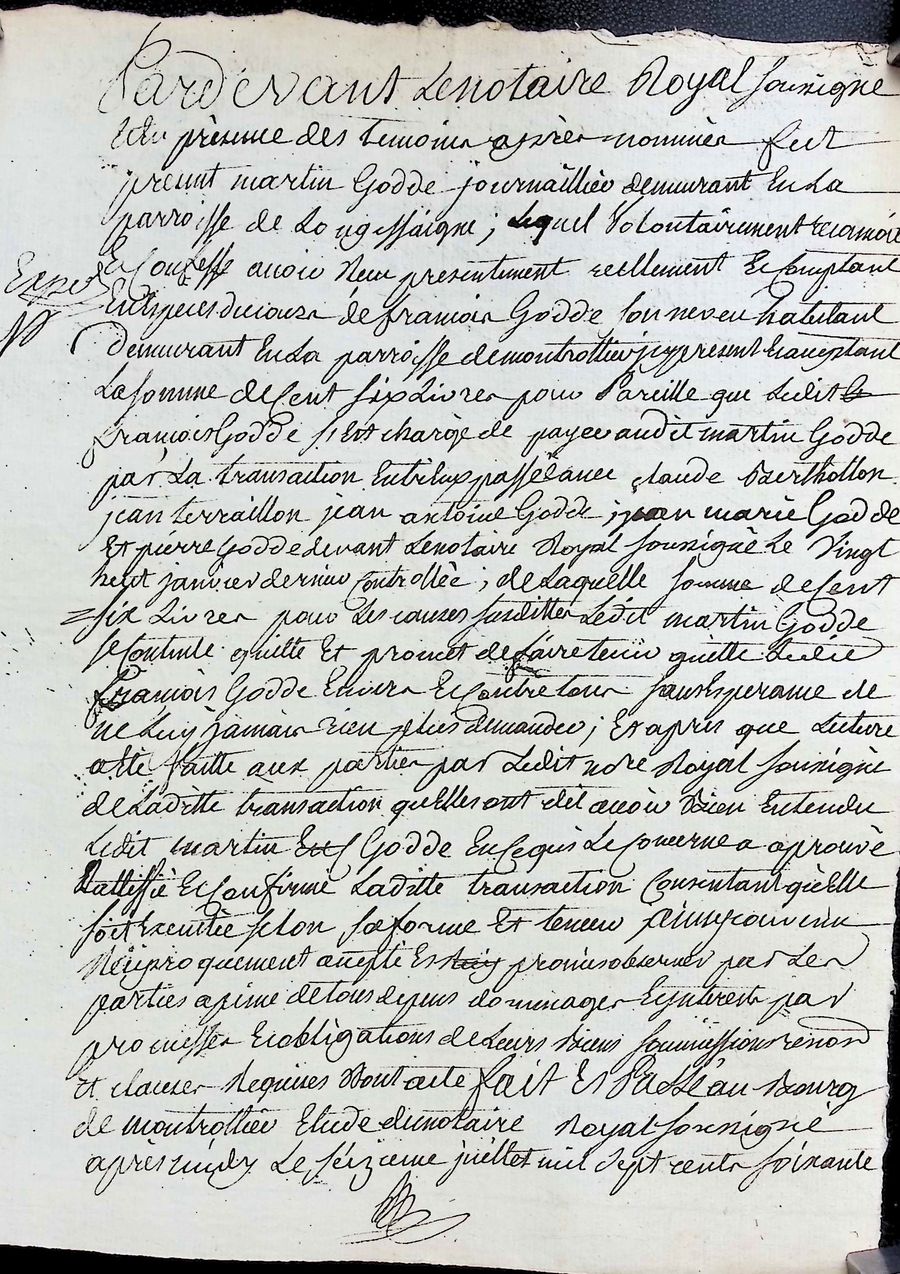 Pardevant Lenotaire Royal sousigné
Et en presence des temoins après nommés fut
present martin Godde journaillier demeurant En La
parroisse de Longessaigne ; Lequel Volontairement reconnoit
Expédié
Et Confesse avoir Reçu presentement reellement Et Comptant
En Especes du cours de francois Godde son neveu habitant
demeurant En La parroisse de montrottier icy present Et acceptant
La somme de Cent six Livres pour Pareille que Ledit
francois Godde s'Est chargé de payer audit martin Godde
par La transaction Entr'Eux passé avec claude Berthollon
jean terraillon jean antoine Godde jean marie Godde
Et pierre Godde devant Lenotaire Royal sousigné Le Vingt
huit janvier dernier Controllée ; de Laquelle somme de Cent
six Livres pour Les causes susdittes Ledit martin Godde
se Contente quitte Et promet de faire tenir quitte Ledit
francois Godde Envers Et Contre tous sans Esperance de
ne Luy jamais rien plus demander ; Et après que Lecture
a Eté faitte aux parties par Ledit no.re Royal sousigné
de Laditte transaction qu'elles ont dit avoir Bien Entendu
Ledit martin Godde En Ce qui Le Concerne a aprouvé
Rattiffié Et Confirmé Laditte transaction Consentant qu'Elle
soit Executée selon sa forme Et teneur ainsy convenu
Reciproquement accepté Et promis observer par Les
parties a peine de tous depens dommages Et interets par
promesses Et obligations de Leurs Biens soumissions renon
Et clauses Requises Dont acte fait Et Passé au Bourg
de montrottier Etude du notaire Royal sousigné
après midy Le seizieme juillet mil sept cents soixante